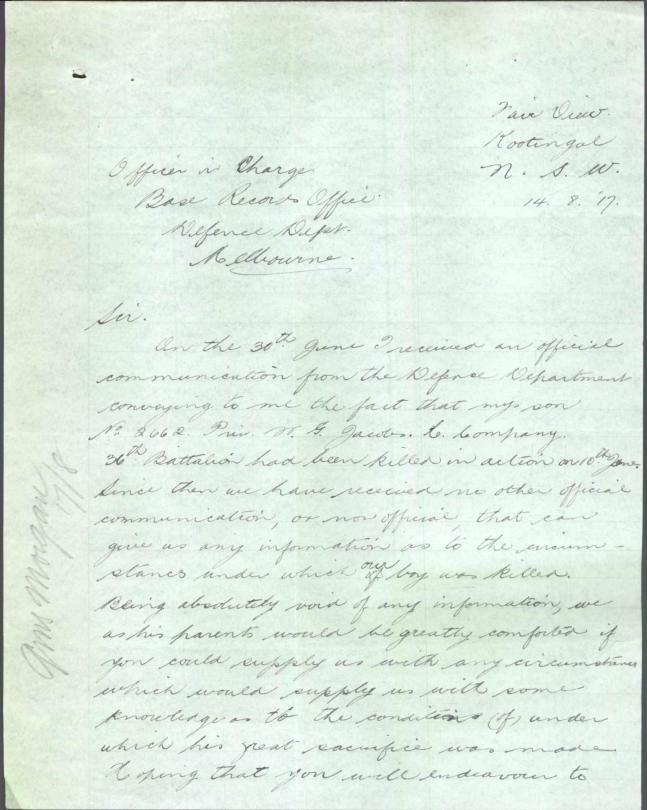 Fair View.
Kootingal
N. S. W.
14. 8. '17.
Officer in Charge
Base Records Office.
Defence Dept.
Melbourne.
Sir.
On the 30th June I received an official
communication from the Defence Department
conveying to me the fact that my son
No. 2662. Priv. W. G. Jacobs. C. Company.
36th Battalion had been killed in action on 10th June.
Since then we have received no other official
communication, or non official, that can
give us any information as to the circum-
stances under which our boy was killed.
Being absolutely void of any information, we
as his parents would be greatly comforted if
you could supply us with any circumstances
which would supply us with some
knowledge as to the conditions (of) under
which his great sacrifice was made
Hoping that you will endeavour to
Morgan